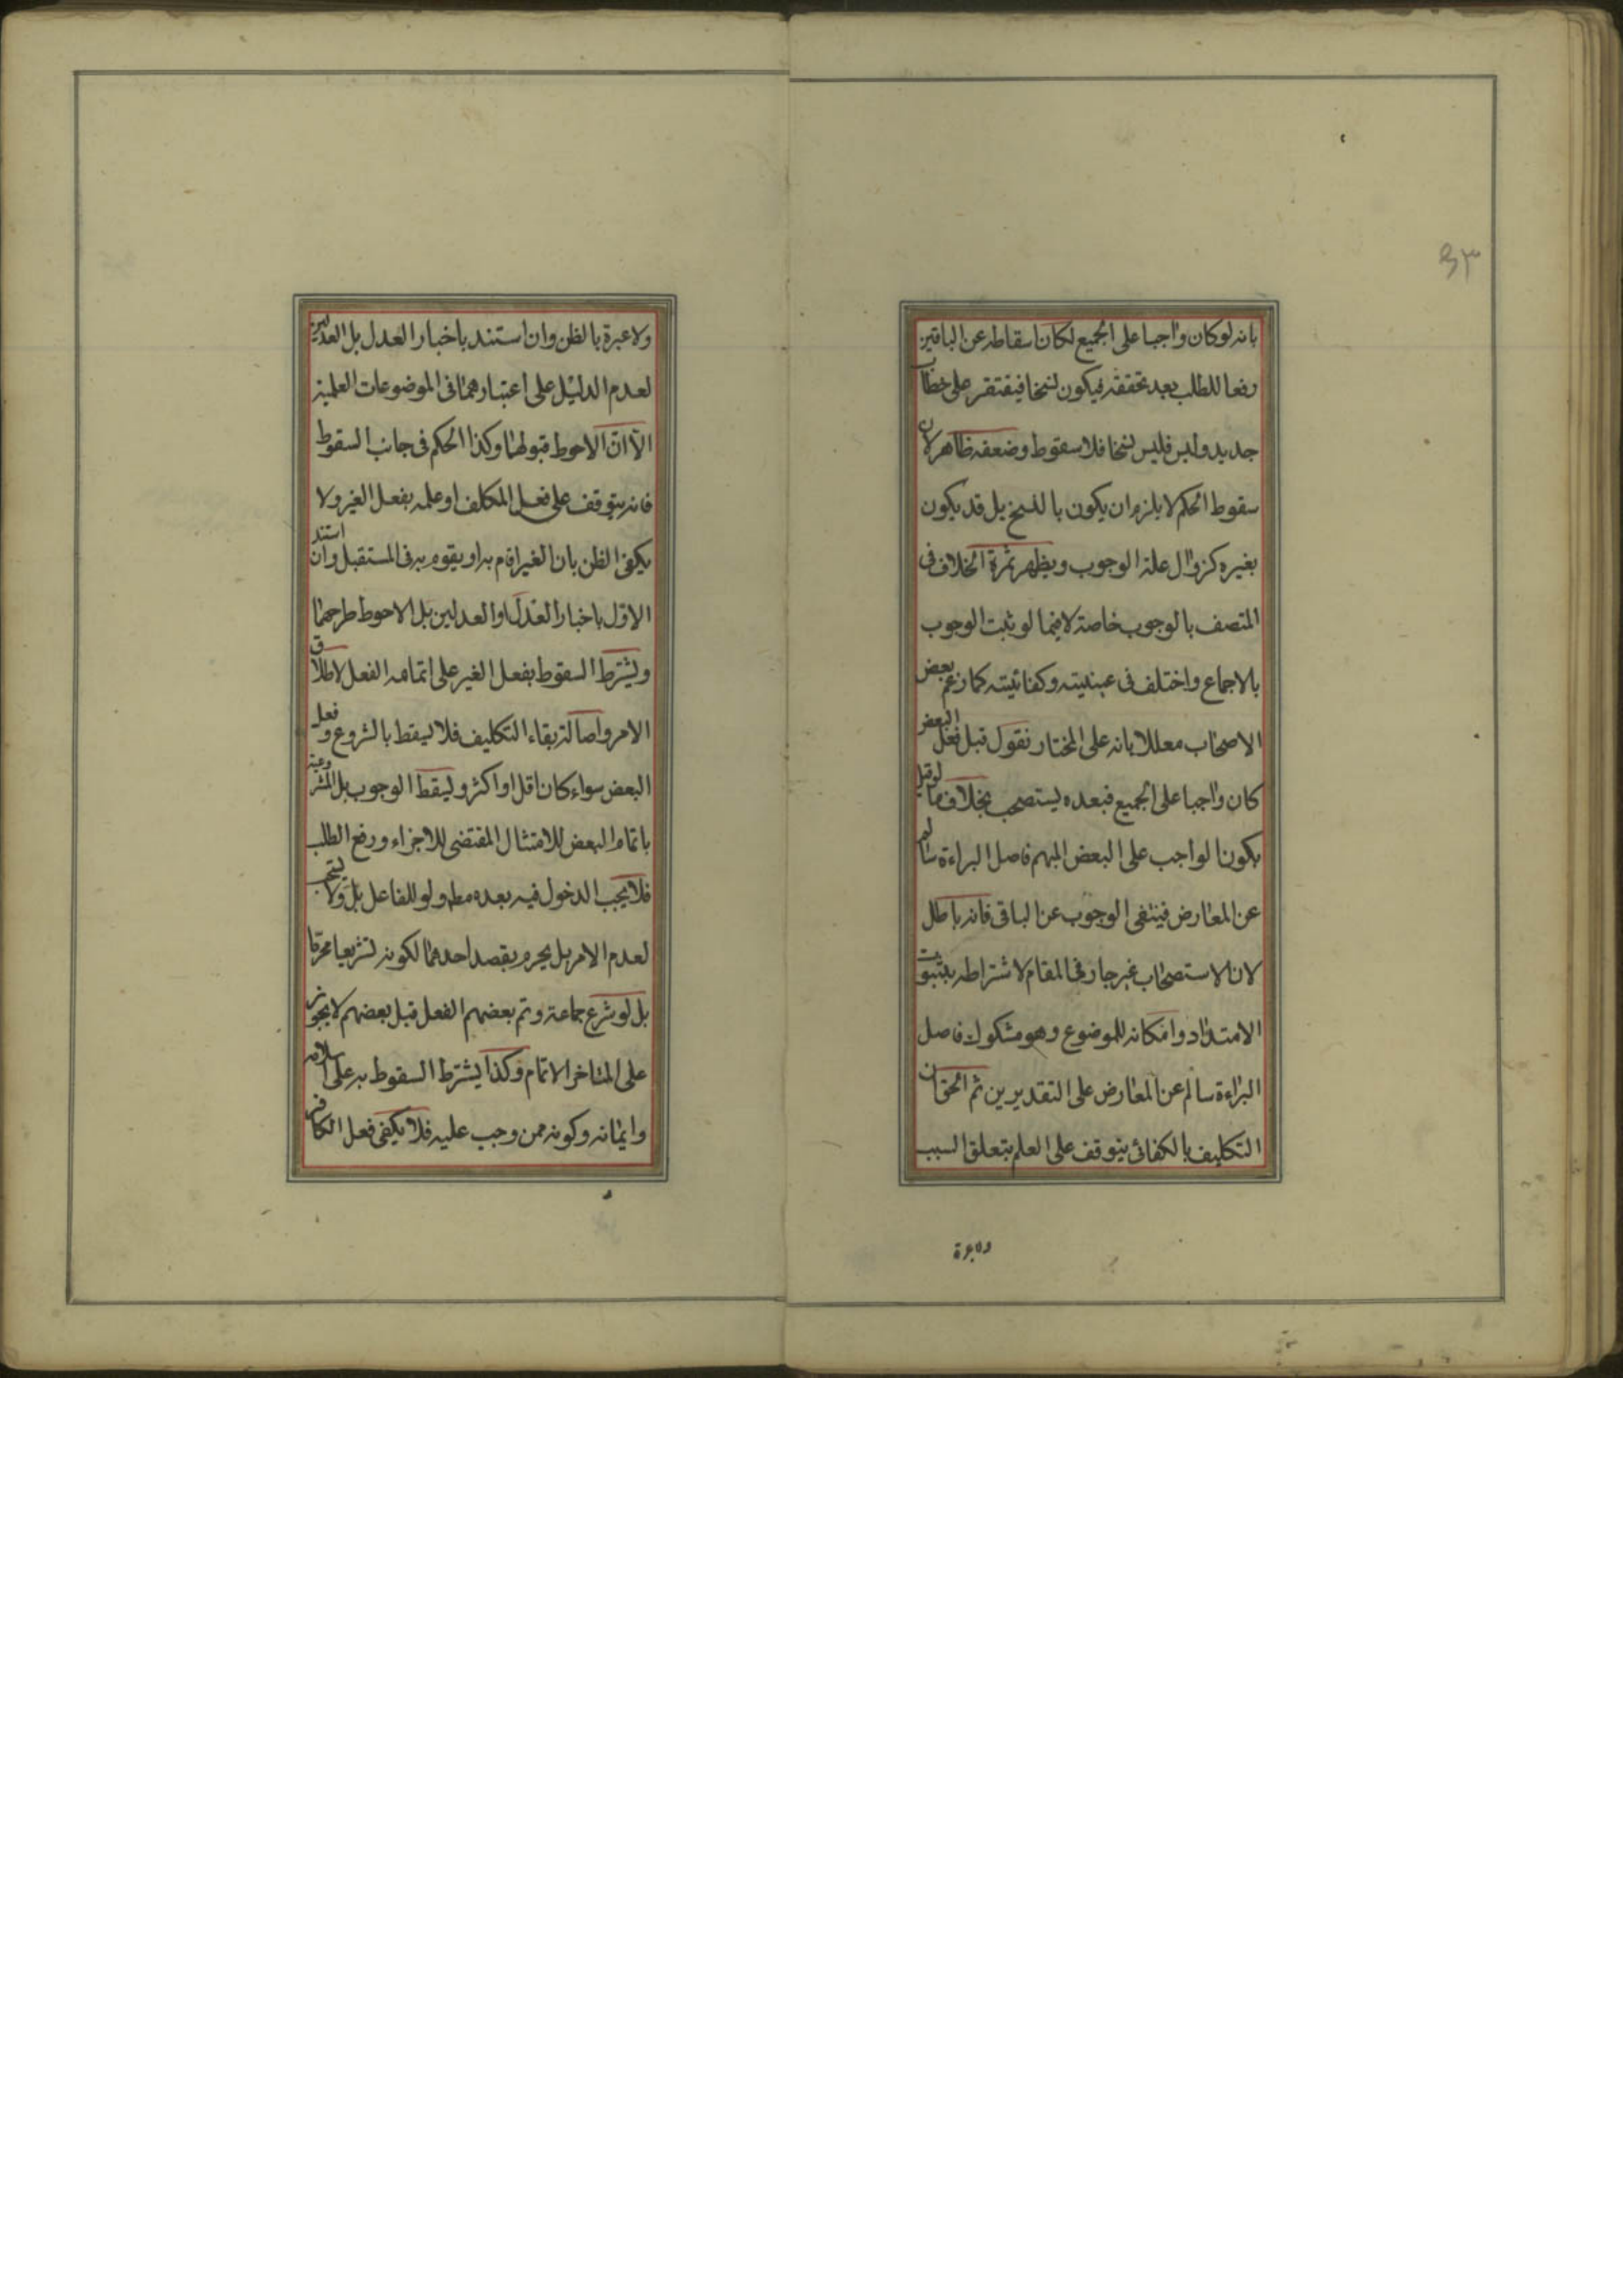 بانه لوكان واجبا على الجميع لكان اسقاطه عن الباقين
رفعا للطلب بعد تحققه فيكون نسخا فيفتقر على خطاب
جديد وليس فليس نسخا فلا سقوط وضعفه ظاهر لان
سقوط الحكم لا يلزم ان يكون بالنسخ بل قد يكون
بغيره كزوال علة الوجوب ويظهر ثمرة الخلاف فى
المتصف بالوجوب خاصة لا فيما لو يثبت الوجوب
بالاجماع واختلف فى عينيته وكفائيته كما زعم بعض
الاصحاب معللا بانه على المختار نقول قبل فعل البعض
كان واجبا على الجميع فبعده يستصحب بخلاف ما لو قيل
بكون الواجب على البعض المبهم فاصل البراءة سالم
عن المعارض فينفى الوجوب عن الباقى فانه باطل
لان الاستصحاب غير جار فى المقام لاشتراطه بثبوت
الامتداد وامكانه للموضوع وهو مشكوك فاصل
البراءة سالم عن المعارض على التقديرين ثم الحق ان
التكليف بالكفائى يتوقف على العلم بتعلق السبب
ولا عبرة
ولا عبرة بالظن وان استند باخبار العدل بل العدلين
لعدم الدليل على اعتبارهما فى الموضوعات العلمية
الا ان الاحوط قبولهما وكذا الحكم فى جانب السقوط
فانه يتوقف على فعل المكلف او علمه بفعل الغير ولا
يكفى الظن بان الغير اقام به او يقوم به فى المستقبل وان استند
الاول باخبار العدل او العدلين بل الاحوط طرحهما
ويشترط السقوط بفعل الغير على اتمامه الفعل لاطلاق
الامر واصالة بقاء التكليف فلا يسقط بالشروع و فعل
البعض سواء كان اقل او اكثر ويسقط الوجوب بل المشروعية
باتمام البعض للامتثال المقتضى للاجزاء ورفع الطلب
فلا يجب الدخول فيه بعده مطلقا ولو للفاعل بل ولا يستحب
لعدم الامر بل يحرم بقصد احدهما لكونه تشريعا محرما
بل لو شرع جماعة وتم بعضهم الفعل قبل بعضهم لا يجوز
على المتاخر الاتمام وكذا يشترط السقوط به على اسلامه
وايمانه وكونه ممن وجب عليه فلا يكفى فعل الكافر